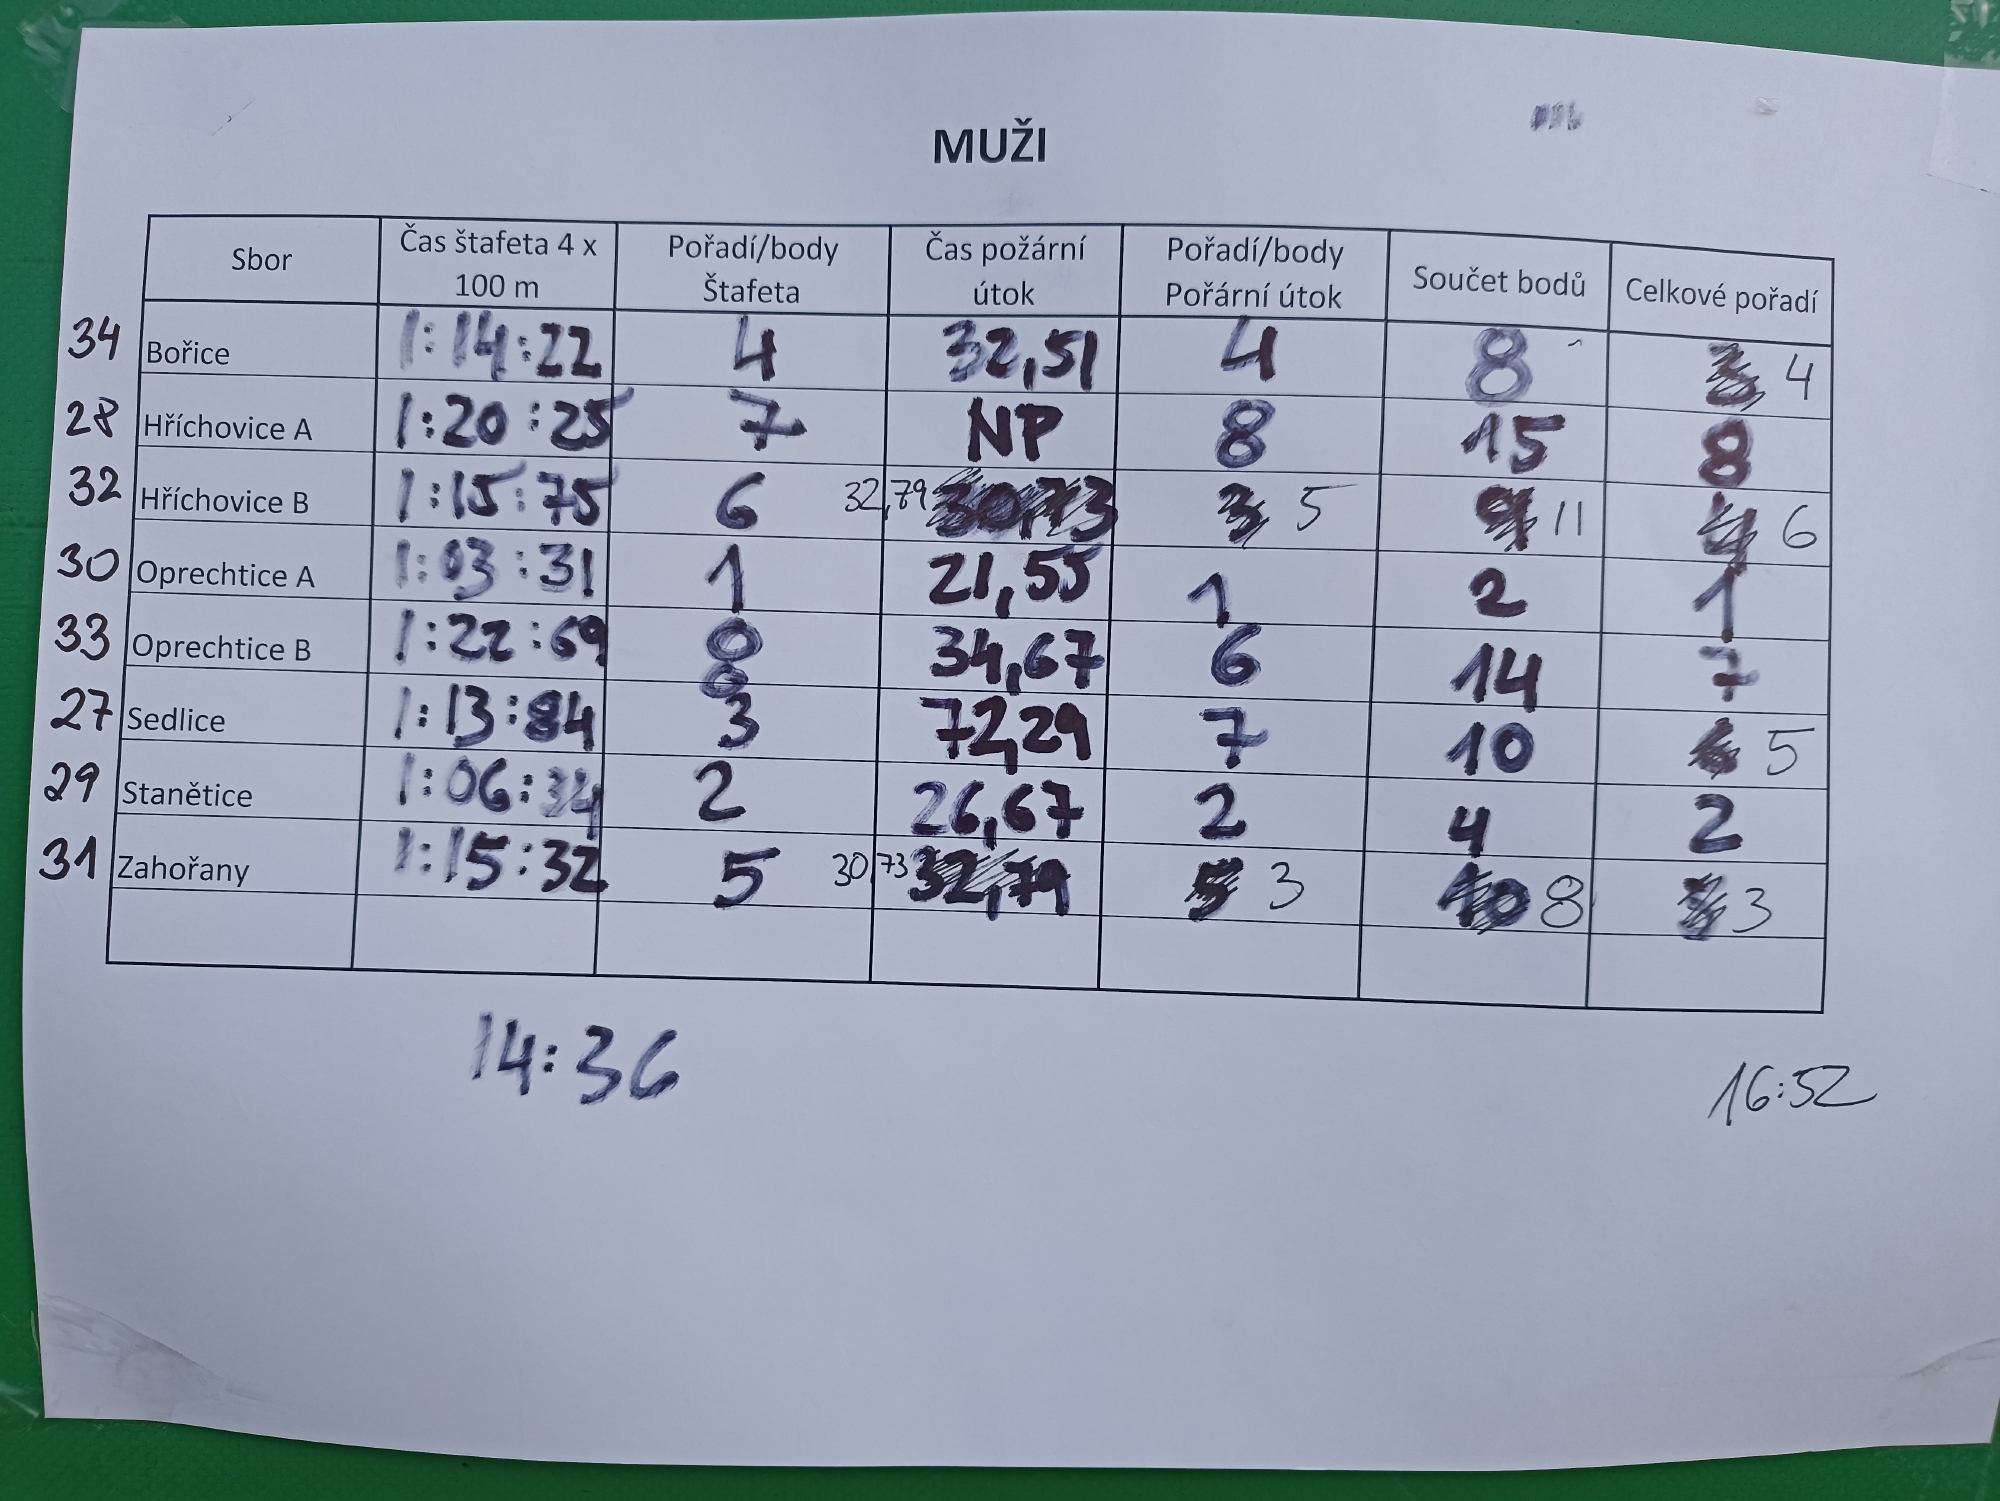 MUŽI
Sbor Čas štafeta 4 x 100 m Pořadí/body Štafeta Čas požární útok Pořadí/body Pořární útok Součet bodů Celkové pořadí
34 Bořice 1:14:22 4 32,51 4 8 3 4
28 Hříchovice A 1:20:25 7 NP 8 15 8
32 Hříchovice B 1:15:75 6 32,79 30,73 3 5 9 11 4 6
30 Oprechtice A 1:03:31 1 21,55 1 2 1
33 Oprechtice B 1:22:69 8 34,67 6 14 7
27 Sedlice 1:13:84 3 72,29 7 10 5
29 Stanětice 1:06:34 2 26,67 2 4 2
31 Zahořany 1:15:32 5 30,73 32,79 5 3 10 8 3
14:36
16:52